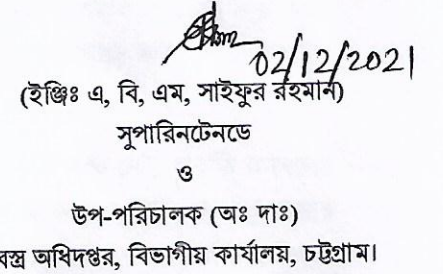 02/12/2021
(ইঞ্জিঃ এ, বি, এম, সাইফুর রহমান)
সুপারিনটেনডে
ও
উপ-পরিচালক (অঃ দাঃ)
বস্ত্র অধিদপ্তর, বিভাগীয় কার্যালয়, চট্টগ্রাম।